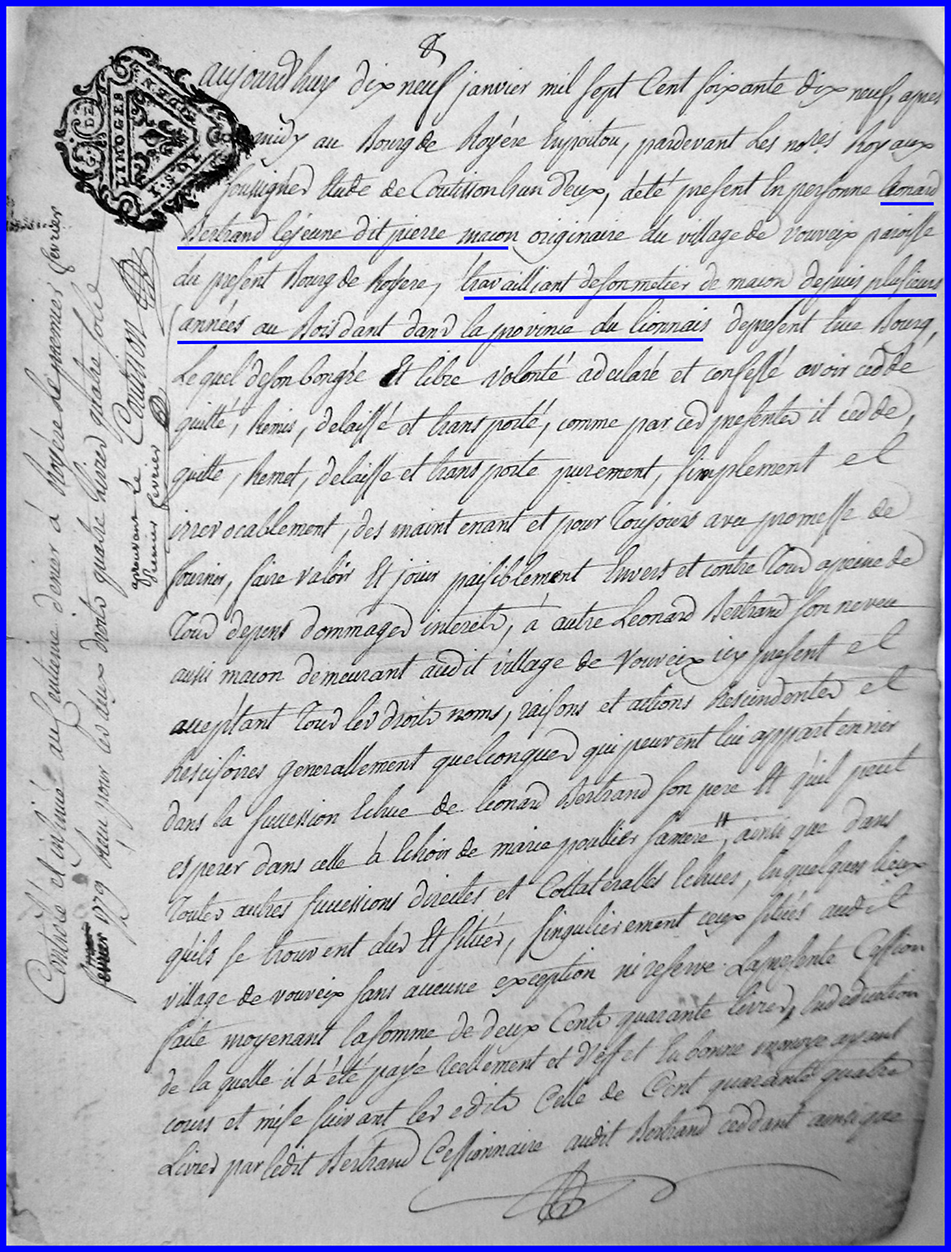 aujourd'huy dix neuf janvier mil sept Cent soixante dix neuf, apres
midy au Bourg de Royére En poitou, pardevant Les no.res Royaux
soussignes Etude de Coutisson l'un d'eux, a été present En personne Léonard
Bertrand lejeune dit pierre macon originaire du village de vouveix paroisse
du present Bourg de Royere, travailliant de son metier de macon depuis plusieurs
années au Bois dant dans la province du lionnais de present En ce Bourg,
Lequel de son bon gré Et libre volonté a déclaré et confessé avoir ceddé
quitté, Remis, delaissé et transporté, comme par ces presentes il cedde,
quitte, Remet, delaisse et transporte purement, simplement et
irrevocablement, des maintenant et pour Toujours avec promesse de
fournir, faire valoir Et jouir paisiblement Envers et contre Tous a peine de
Tous depens dommages interets, à autre Léonard Bertrand son neveu
aussi macon demeurant audit village de Vouveix icy present et
acceptant Tous les droits noms, raisons et actions Rescindentes et
Rescisoires generallement quelconques qui peuvent lui appartennier
dans la succession Echue de Léonard Bertrand son pere Et qu'il peut
esperer dans celle à Echoir de marie poullier sa mere, ainsi que dans
Toutes autres successions directes et Collateralles Echues, En quelques lieux
qu'ils se trouvent dus Et situés, singulierement ceux situés audit
village de vouveix sans aucune exception ni reserve. La presente Cession
faite moyenant la somme de deux Cents quarante livres, En deduction
de la quelle il à été payé Reellement et d'effet En bonne monoye ayant
cours et mise suivant les edits Celle de Cent quarante quatre
Livres par ledit Bertrand Cessionnaire audit Bertrand ceddant ainsi que
Controlé et insinué au Centieme denier à Royére Le premier fevrier
1779 Reçu pour les deux droits quatre livres quatre sols
Coutisson
approuvant Le
Premier fevrier
G. DE LIMOGES